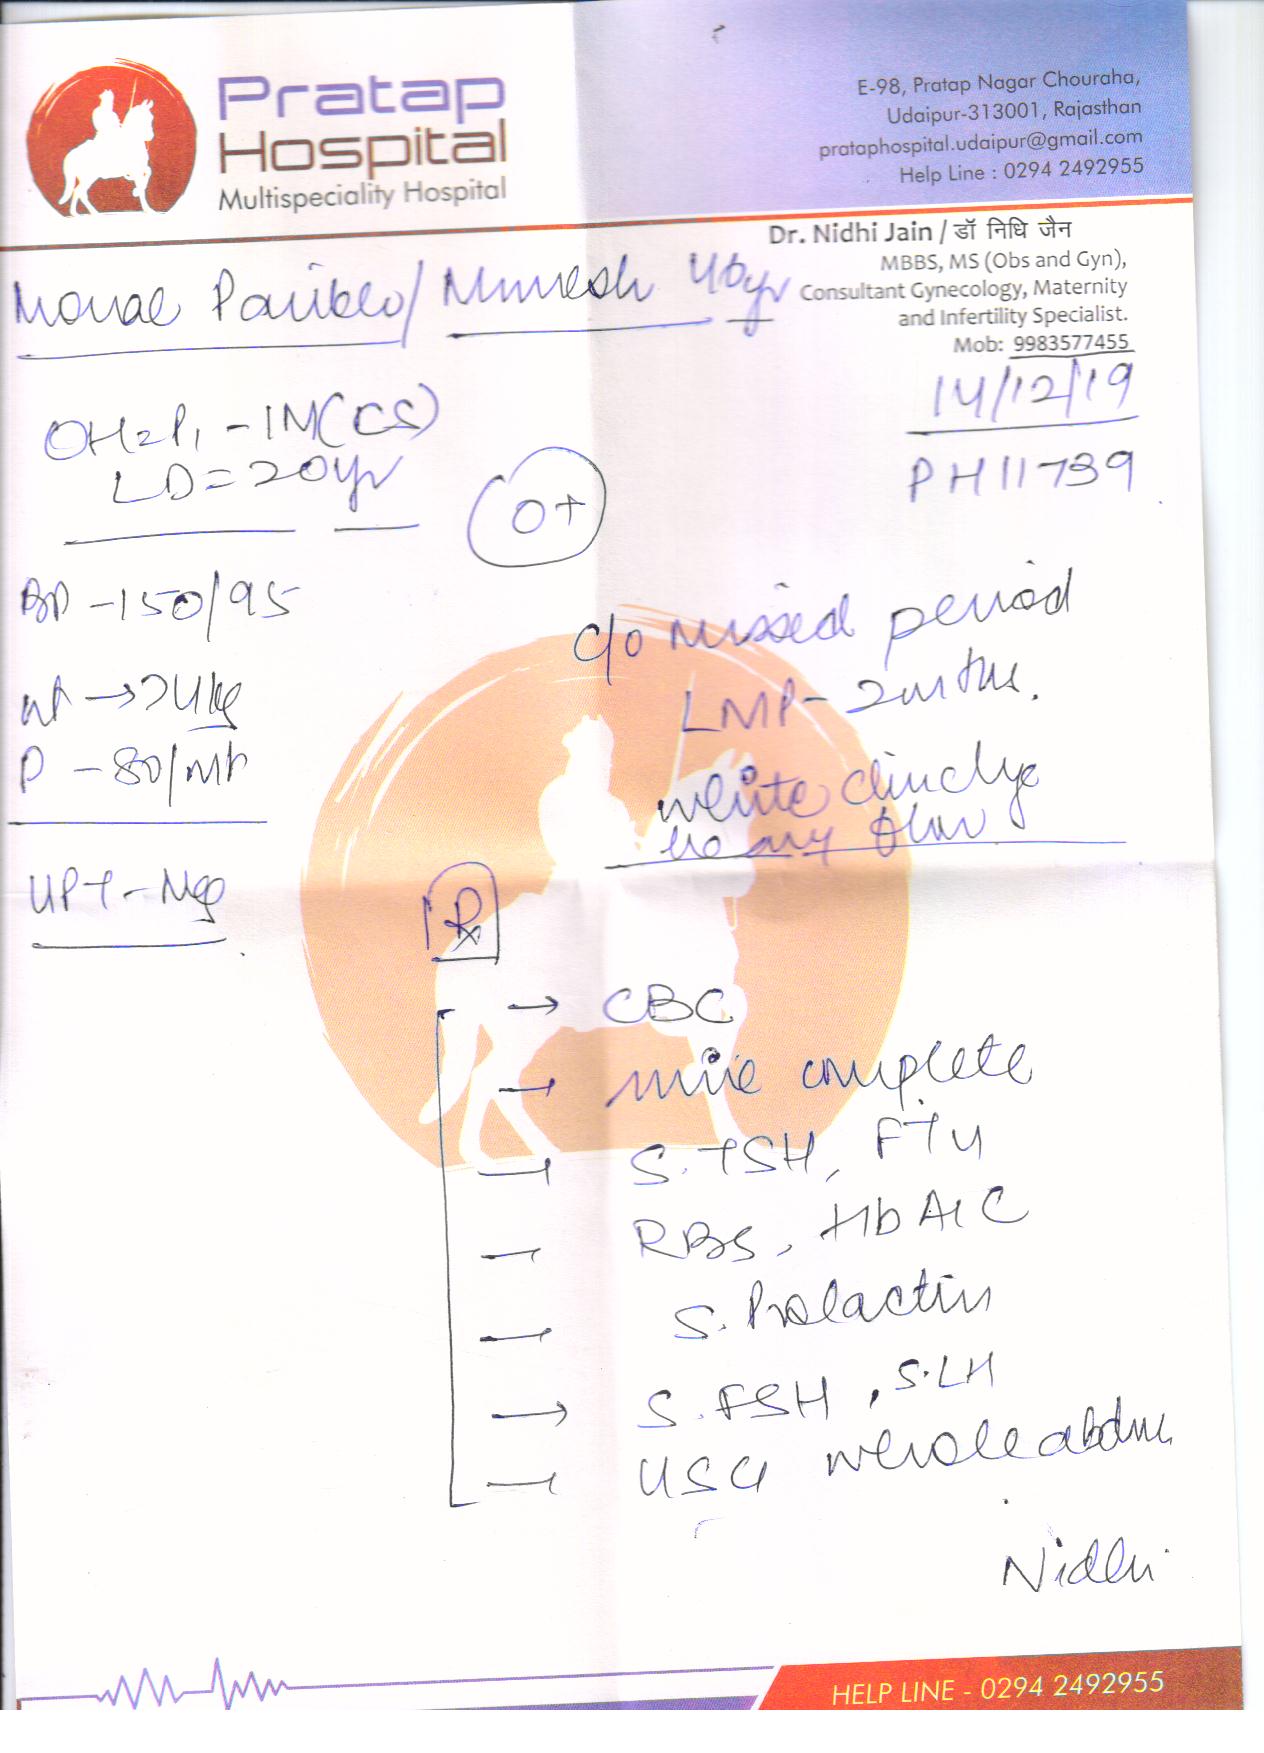 Pratap
Hospital
Multispeciality Hospital
E-98, Pratap Nagar Chouraha,
Udaipur-313001, Rajasthan
prataphospital.udaipur@gmail.com
Help Line : 0294 2492955
Dr. Nidhi Jain / डॉ निधि जैन
MBBS, MS (Obs and Gyn),
Consultant Gynecology, Maternity
and Infertility Specialist.
Mob: 9983577455
46yr
14/12/19
PH11739
OH=P1 - 1M(CS)
LD=20yr
O+
BP - 150/95
wt → 74kg
P - 80/mt
c/o missed period
LMP - 2mths.
white
no any
UPT - Neg
Rx
→ CBC
→ complete
→ S.TSH, FT4
- RBS, HbA1C
- S. Prolactin
→ S.FSH, S.LH
- USG whole abdm
Nidhi
HELP LINE - 0294 2492955